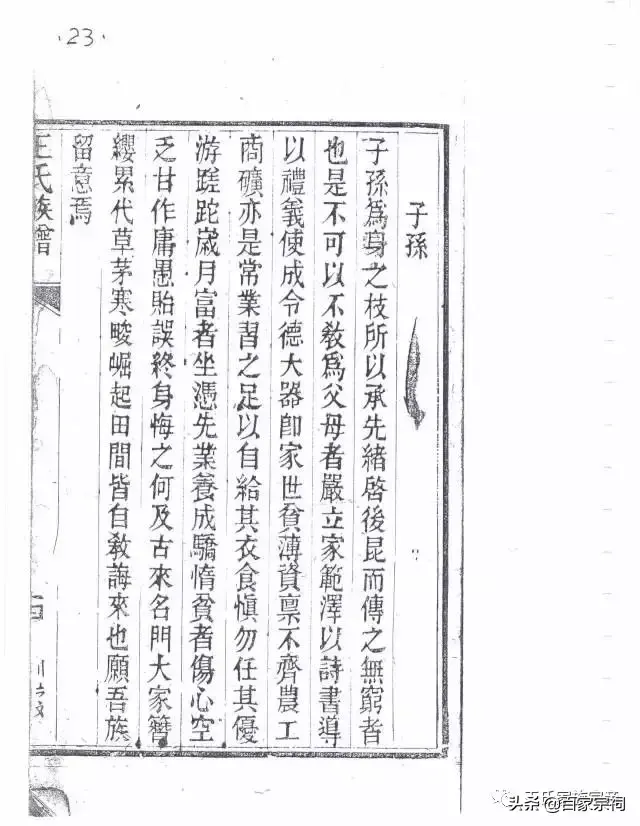 ·23·
子孫
子孫爲身之枝所以承先緒啓後昆而傳之無窮者
也是不可以不敎爲父母者嚴立家範澤以詩書導
以禮義使成令德大器卽家世貧薄資禀不齊農工
商礦亦是常業習之足以自給其衣食愼勿任其優
游蹉跎歲月富者坐憑先業養成驕惰貧者傷心空
乏甘作庸愚貽誤終身悔之何及古來名門大家簪
纓累代草茅寒畯崛起田間皆自敎誨來也願吾族
留意焉
王氏族譜
王氏家族宗亲
头条 @百家宗祠